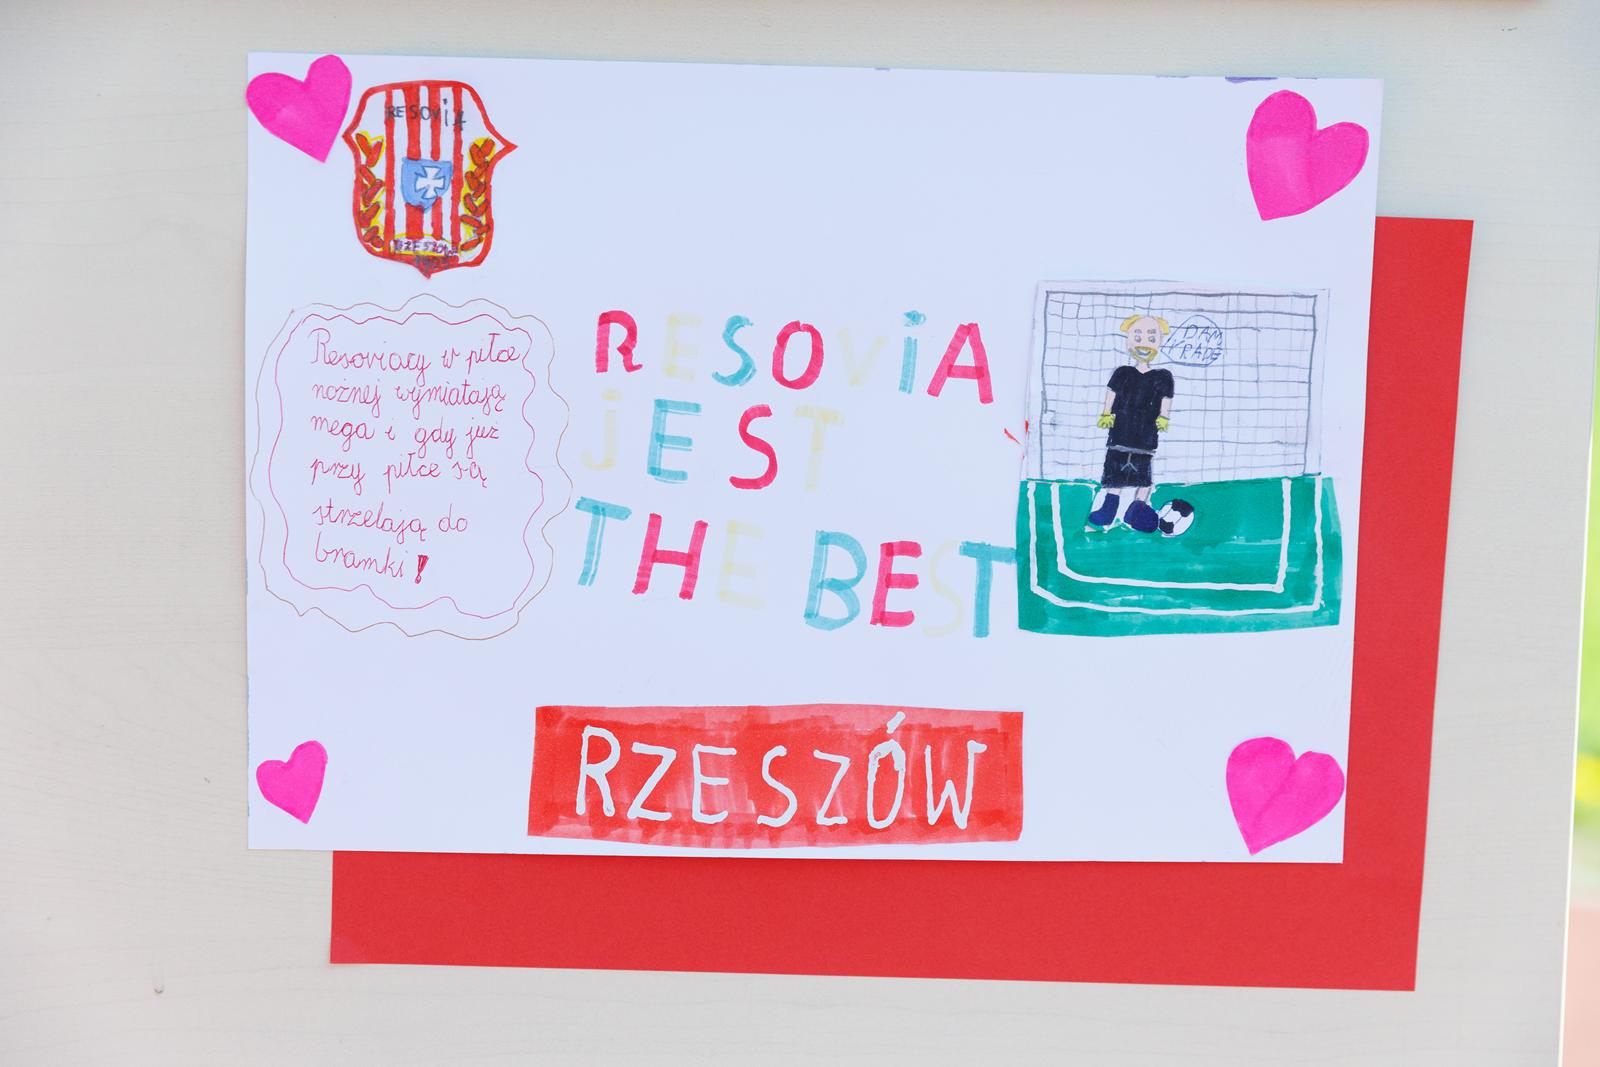 RESOViA
RZESZÓW
Resoviacy w piłce
nożnej wymiatają
mega i gdy już
przy piłce są
strzelają do
bramki!
RESOViA
jEST
THE BEST
DAM
RADĘ
RZESZÓW